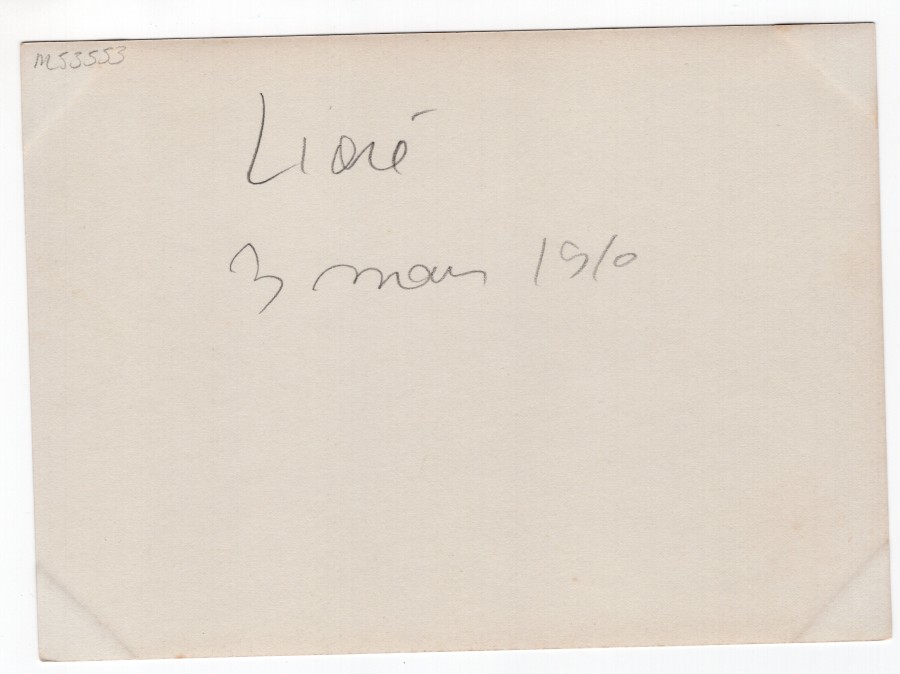 M53553
Lioré
3 mars 1910